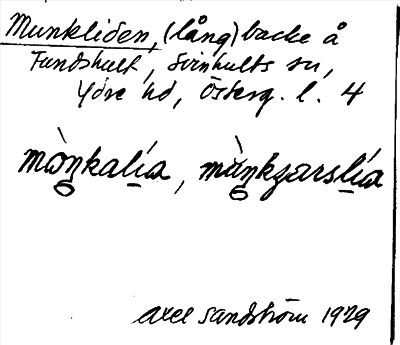 Munkliden, (lång) backe å
Fundshult, Svinhults sn,
Ydre hd, Österg. l. 4
mòn̠kalía, mùn̠kgarslía
Axel Sandström 1929